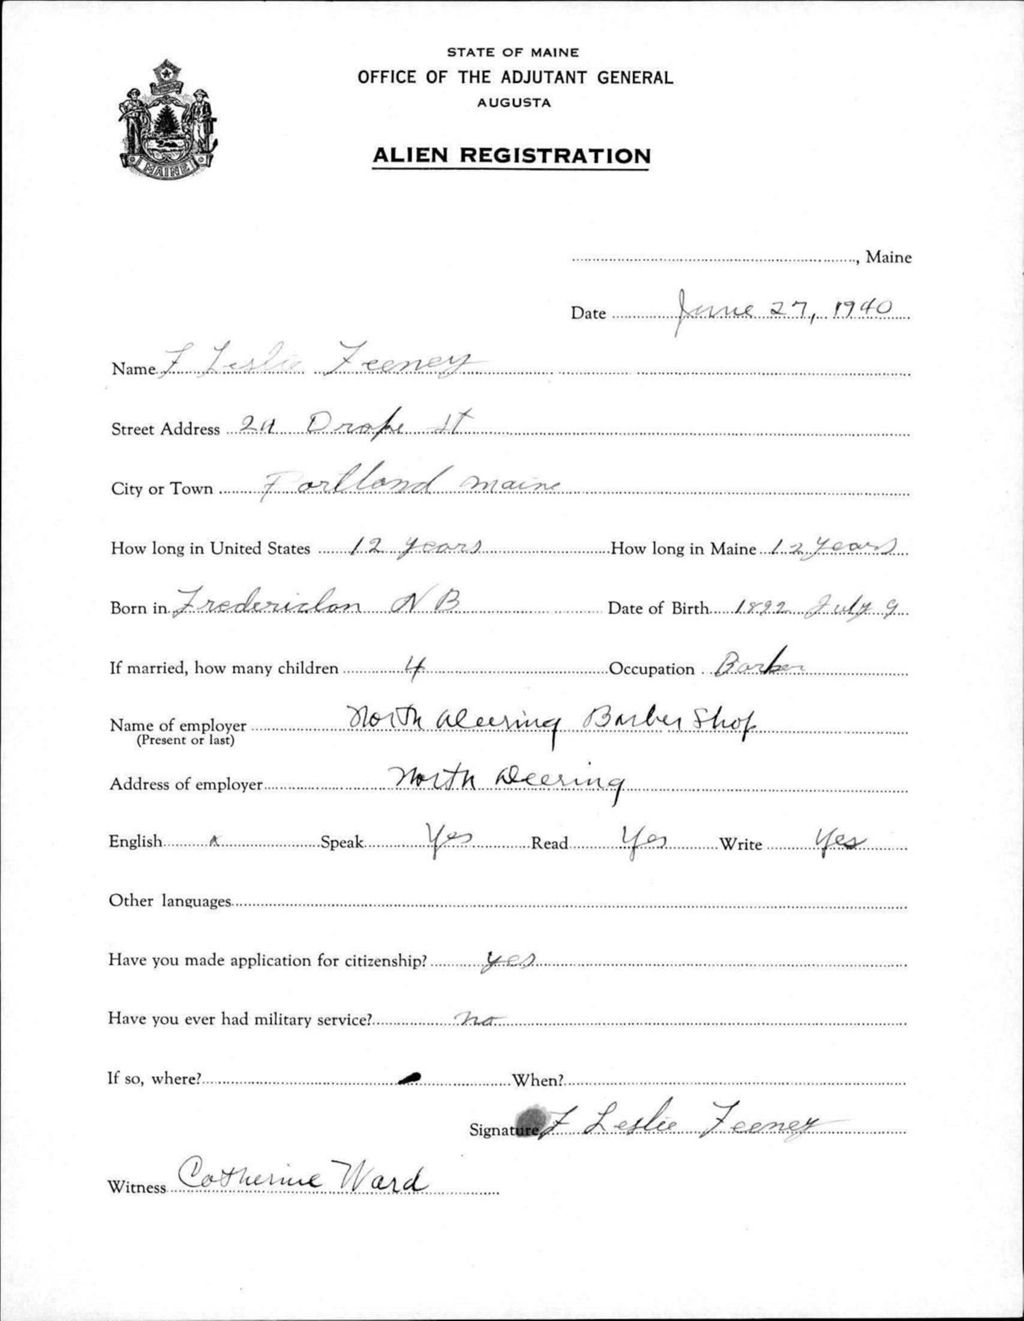 STATE OF MAINE
OFFICE OF THE ADJUTANT GENERAL
AUGUSTA
ALIEN REGISTRATION
MAINE
, Maine
Date June 27, 1940
Name F Leslie Feeney
Street Address Drake St
City or Town Portland Maine
How long in United States 12 years How long in Maine 12 years
Born in Fredericton N B Date of Birth 1892 July 9
If married, how many children 4 Occupation Barber
Name of employer North Deering Barber Shop
(Present or last)
Address of employer North Deering
English x Speak Yes Read Yes Write Yes
Other languages
Have you made application for citizenship? yes
Have you ever had military service? no
If so, where? When?
Signature F Leslie Feeney
Witness Catherine Ward